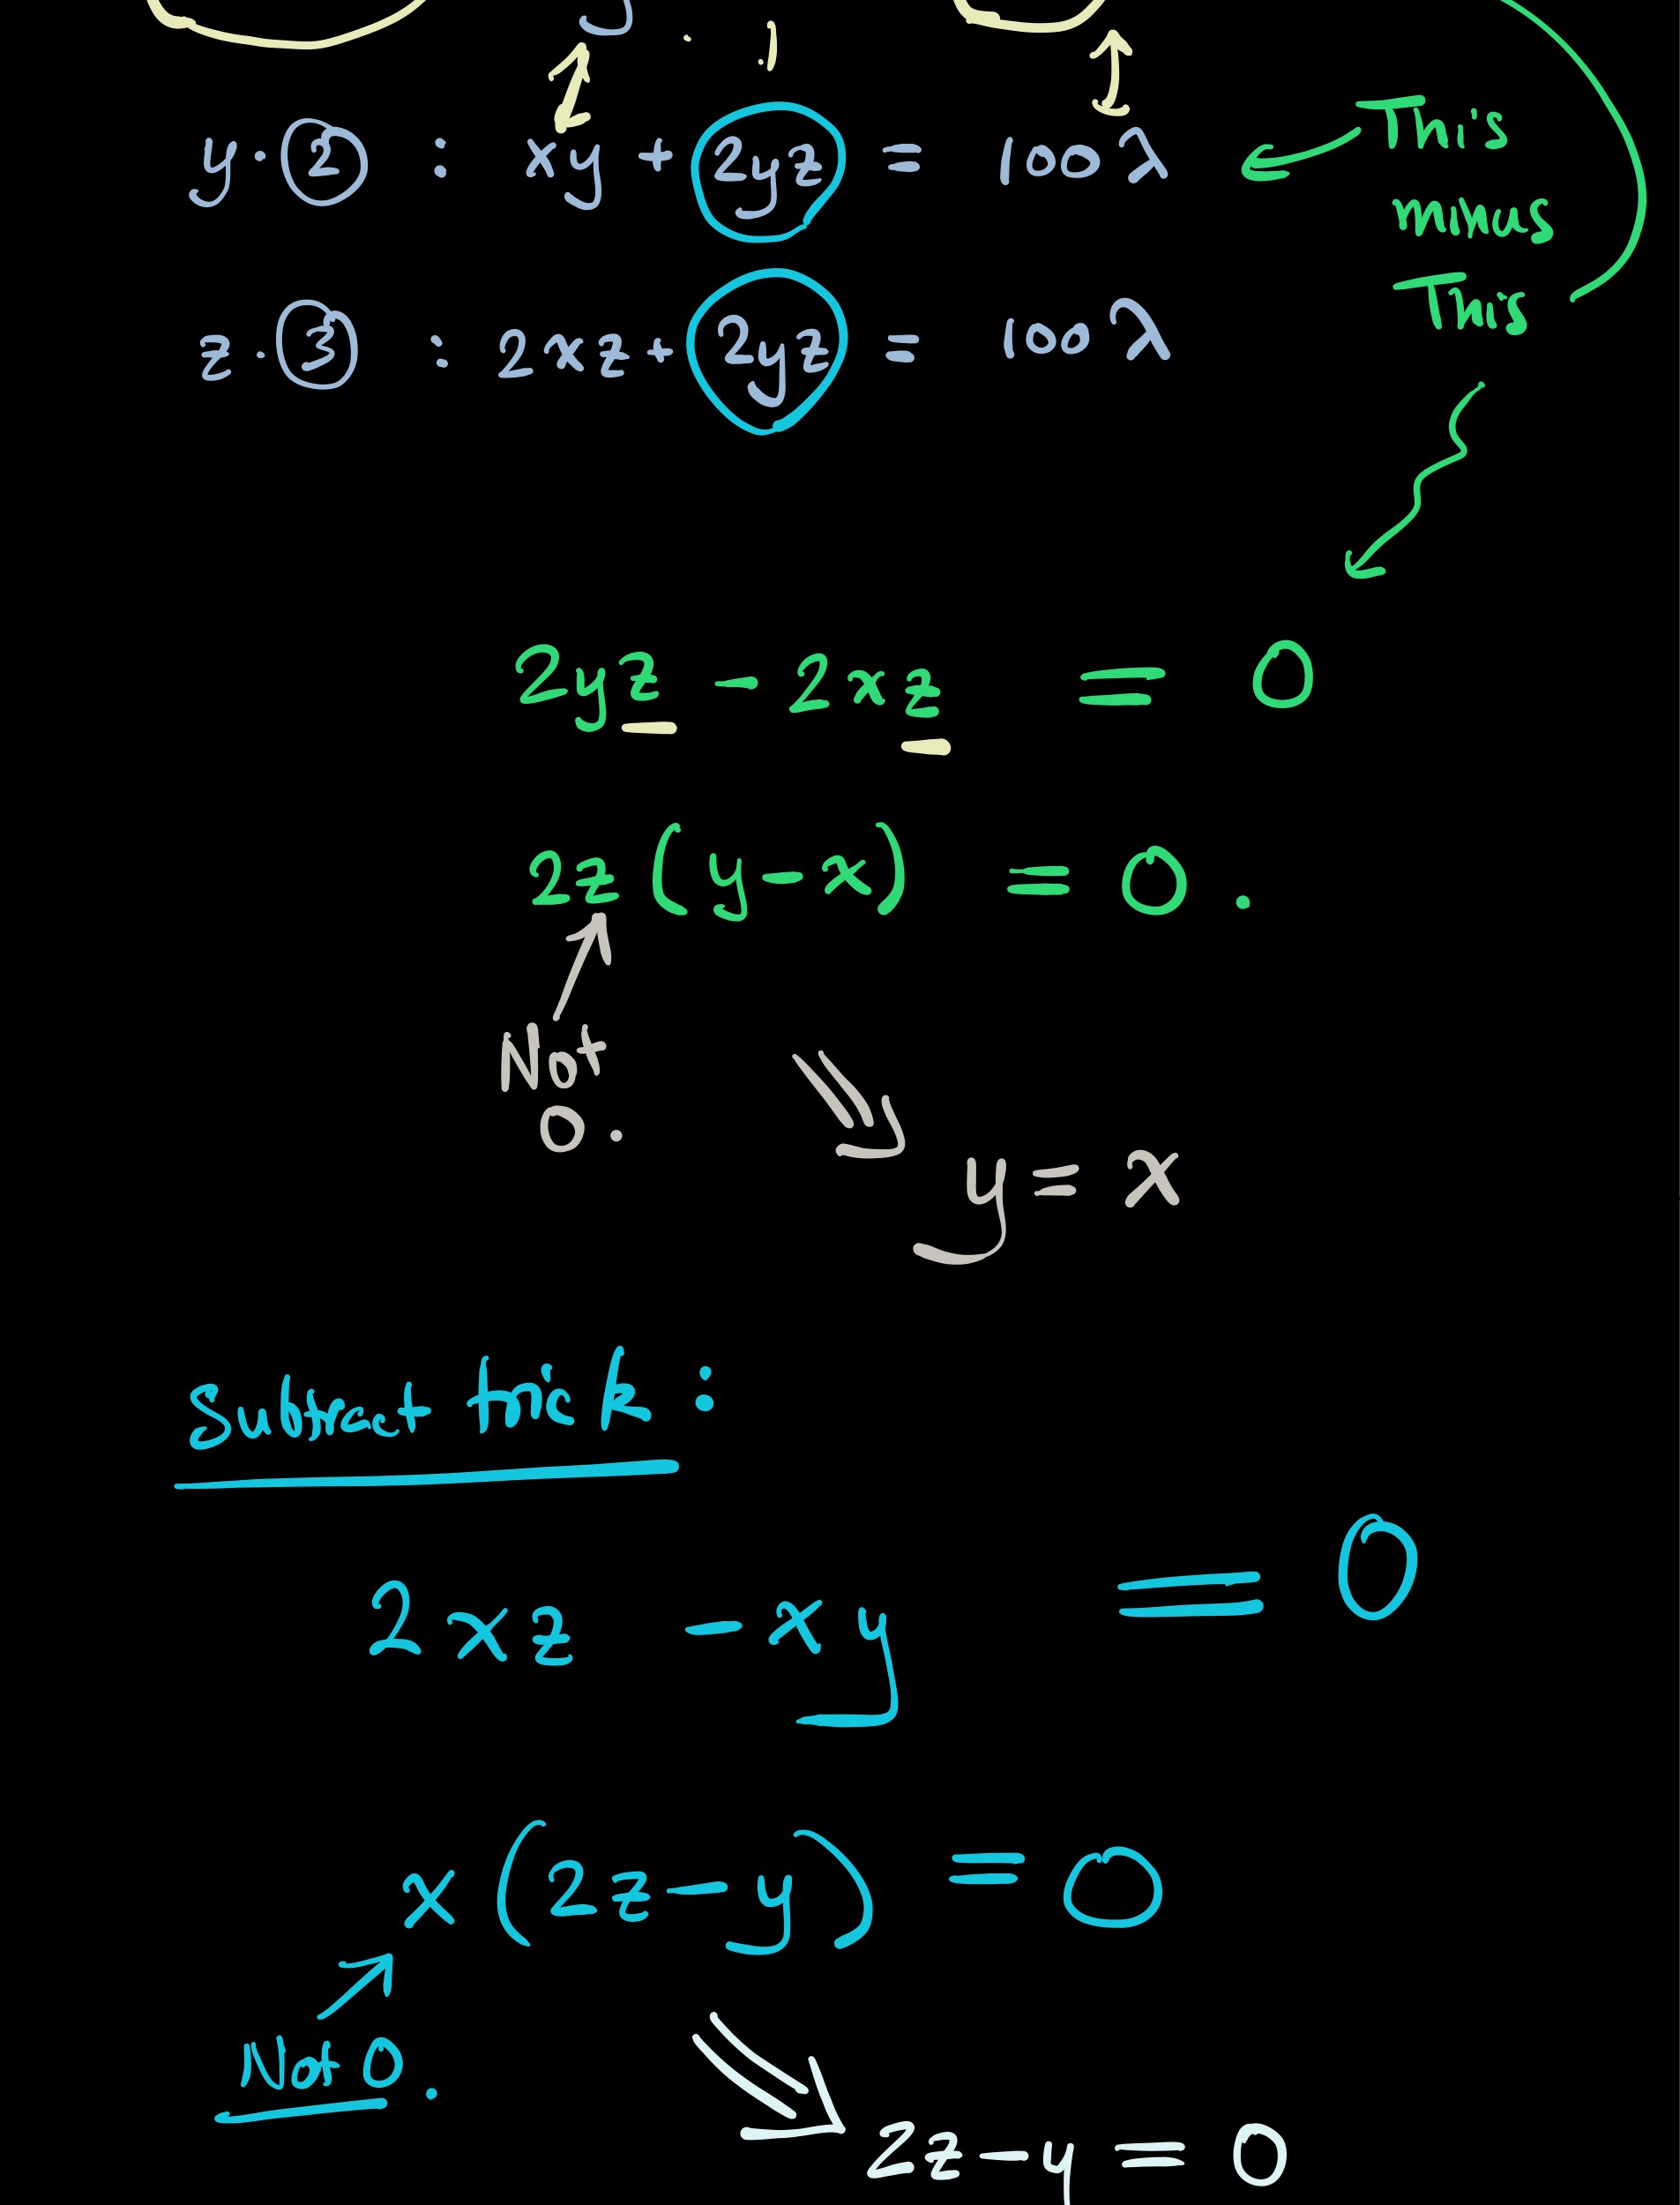 y · ② : xy + 2yz = 100λ
This
minus
This
z · ③ : 2xz + 2yz = 100λ
2yz - 2xz = 0
2z (y-x) = 0 .
Not
0 .
y = x
Subtract trick :
2xz - xy = 0
x (2z - y) = 0
Not 0 .
2z - y = 0